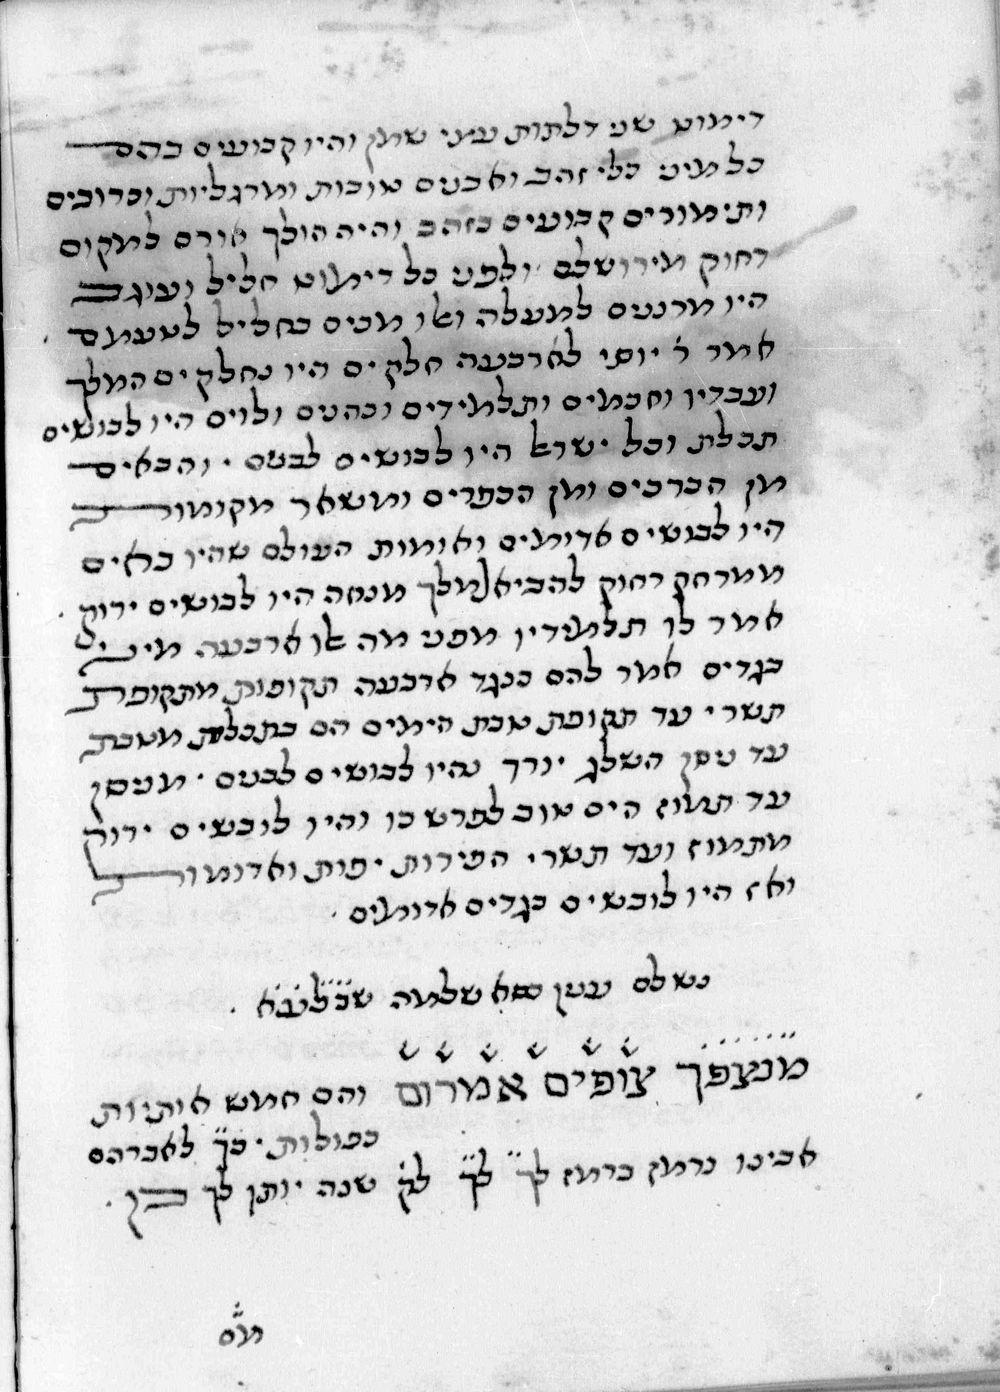 דימוס שני דלתות עצי שמן והיו קבועים בהם
כל מיני כלי זהב ואבנים טובות ומרגליות וכרובים
ותימורים קבועים בזהב והיה הולך אורם למקום
רחוק מירושלם ולפני כל דימוס חליל ועוגב
היו מרננים למעלה ואלו מכים בחליל לטעמם
אמר ר' יוסי לארבעה חלקים היו נחלקים המלך
ועבדיו וחכמים ותלמידים וכהנים ולוים היו לבושים
תכלת וכל ישראל היו לבושים לבנים . והבאים
מן הכרכים ומן הכפרים ומשאר מקומות
היו לבושים אדומים ואומות העולם שהיו באים
ממרחק רחוק להביא למלך מנחה היו לבושים ירוק .
אמר לו תלמידיו מפני מה אלו ארבעה מיני
בגדים אמר להם כנגד ארבעה תקופות מתקופת
תשרי עד תקופת טבת הימים הם כתכלת מטבת
עד ניסן השלג יורד והיו לבושים לבנים . מניסן
עד תמוז הים טוב לפרש בו והיו לובשים ירוק
מתמוז ועד תשרי הפירות יפות ואדומות
ואז היו לובשים בגדים אדומים .
נשלם ענין כסא שלמה שבלעא .
מנצפך צופים אמרום והם חמש אותיות
כפולות . כ״ך לאברהם
אבינו נרמז ברמז ל״ך ל״ך לק שנה יותן לך בן .
תם